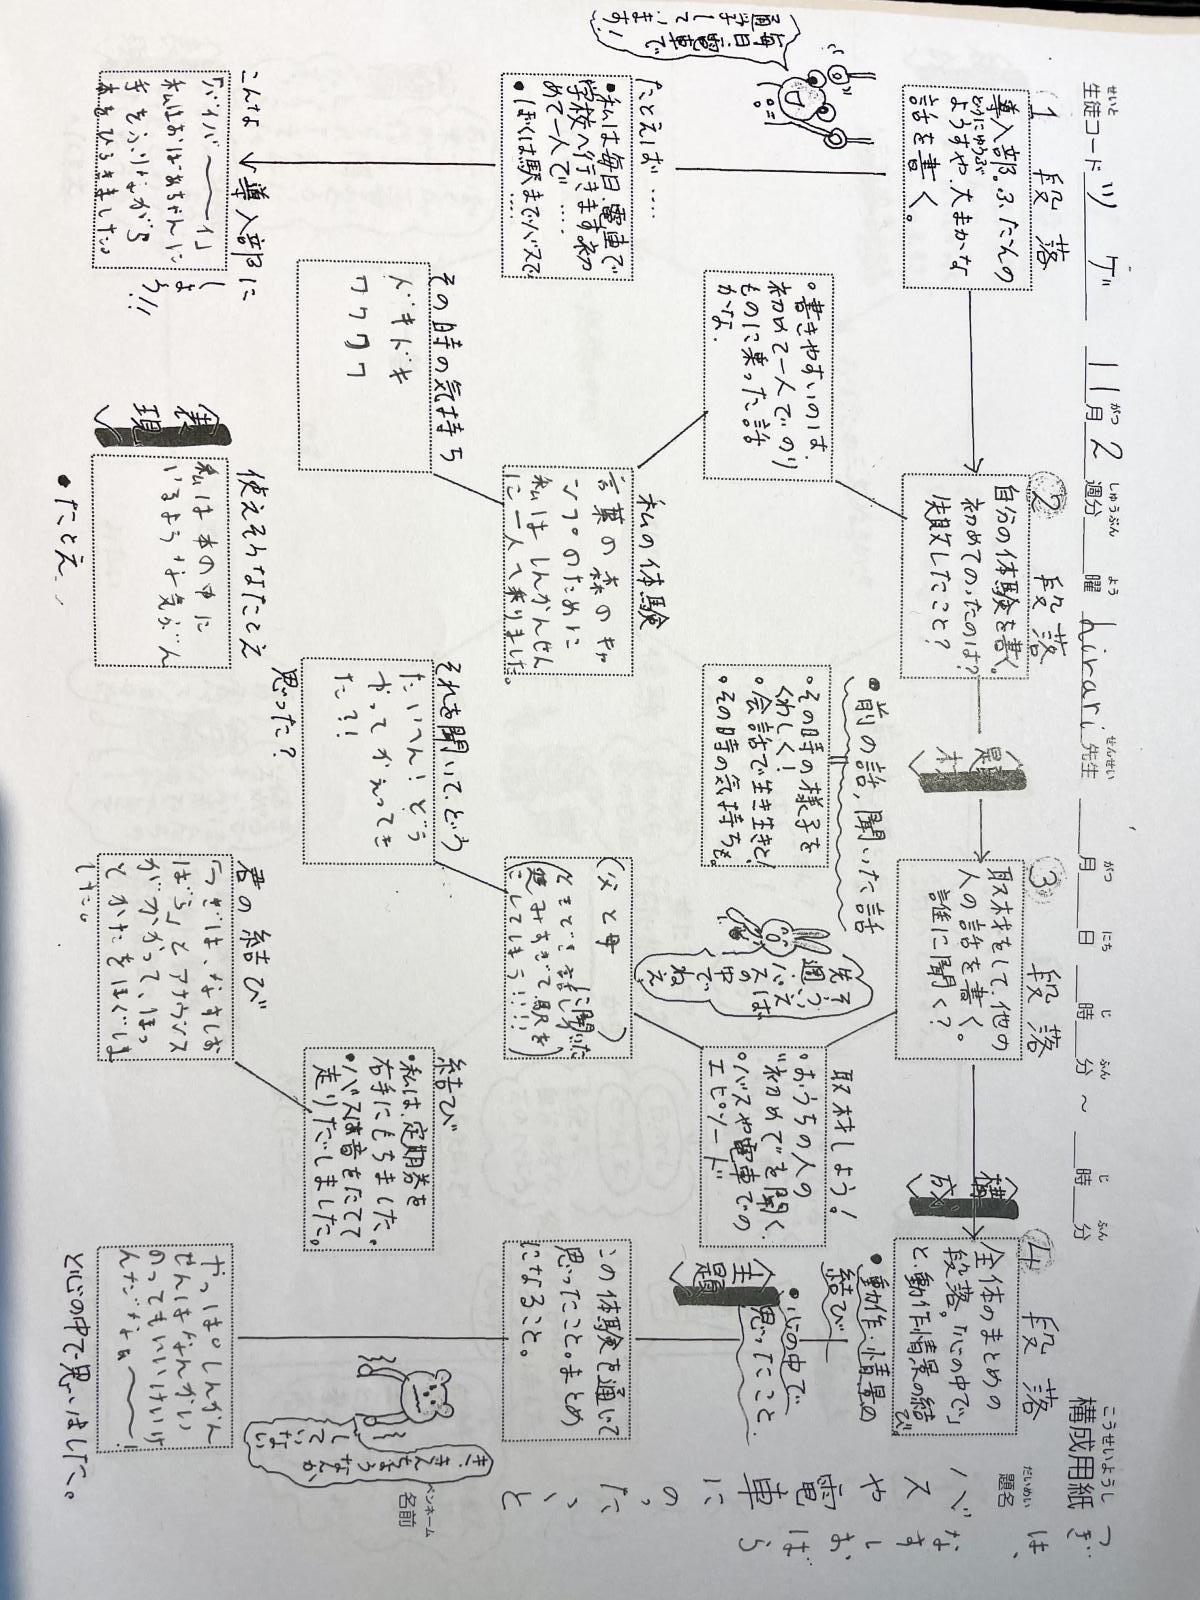 構成用紙
こうせいようし
題名
だいめい
バスや電車にのったこと
つぎは、なすしおばら
ペンネーム
名前
生徒コード ツゲ 11月2週分 曜 hirari先生 月 日 時 分 ~ 時 分
せいと がつ しゅうぶん よう せんせい がつ にち じ ふん じ ふん
1段落
導入部。ふだんの
どうにゅうぶ
ようすや、大まかな
話を書く。
毎日電車で
通学しています!
たとえば……
•私は毎日、電車で
学校へ行きます。初
めて一人で……
•ぼくは駅までバスで
……
こんな導入部に
しよう!!
「バイバ〜〜イ」
私はおばあちゃんに
手をふりながら
本をひらきました。
2段落
自分の体験を書く。
初めてのったのは?
失敗したこと?
。書きやすいのは、
初めて一人でのり
ものに乗った話
かな。
私の体験
言葉の森のキャ
ンプのために
私はしんかんせん
に一人で乗りました。
その時の気持ち
ドキドキ
ワクワク
〈表現〉
使えそうなたとえ
私は本の中に
いるような気がん
•たとえ
〈題材〉
3段落
取材をして、他の
人の話を書く。
誰に聞く?
•前の話,聞いた話
。その時の様子を
くわしく!
。会話で生き生きと!
。その時の気持ちを。
取材しよう!
。おうちの人の
"初めて"を聞く。
。バスや電車での
エピソード
先週
バスの中でねえ
(父と母に聞いた)
それを聞いて、どう
思った?
たいへん!どう
やってかえってき
た?!
結び
•私は、定期券を
右手にもちました。
•バスは音をたてて
走りだしました。
君の結び
「つぎは、なすしお
ばら」とアナウンス
がかかって、ほっ
とかたをほぐしま
した。
〈構成〉
4段落
全体のまとめの
段落。「心の中で」
と、動作情景の結び
•動作・情景の
結び
•心の中で
思ったこと
〈主題〉
この体験を通して
思ったこと。まとめ
になること。
やっぱりしんかん
せんはなんかい
のってもいいけいけ
んだなぁ〜〜!
と心の中で思いました。